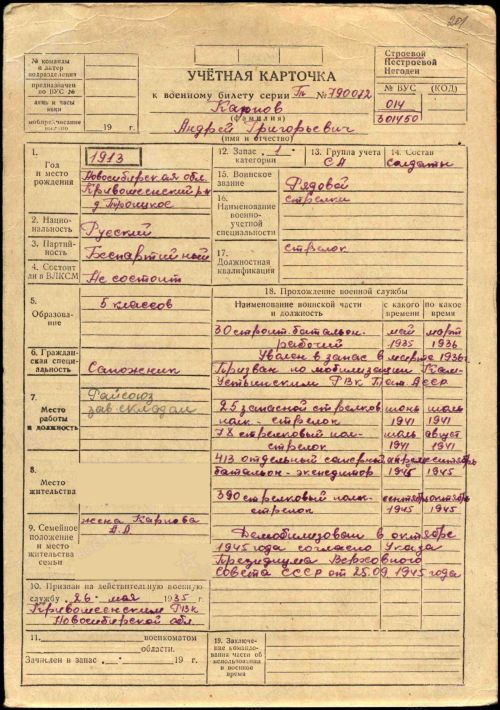 201
№ команды и литер подразделения
предназначено по ВУС №
день и часы явки
19 г.
УЧЁТНАЯ КАРТОЧКА
к военному билету серии Гп № 790072
Карпов
(фамилия)
Андрей Григорьевич
(имя и отчество)
Строевой
Нестроевой
Негоден
№ ВУС (КОД)
014
301450
1. Год и место рождения
1913
Новосибирская обл.
Кривошеинский р-н
д. Троицкое
2. Национальность
Русский
3. Партийность
Беспартийный
4. Состоит ли в ВЛКСМ
Не состоит
5. Образование
5 классов
6. Гражданская специальность
Сапожник
7. Место работы и должность
Райсоюз
зав. складом
8. Место жительства
9. Семейное положение и место жительства семьи
жена Карпова
А.А.
10. Призван на действительную военную
службу „26“ мая 1935 г.
Кривошеинским РВК
Новосибирской обл.
11. военкоматом
области.
Зачислен в запас „ “ 19 г.
12. Запас 1 категории
13. Группа учета
СА
14. Состав
солдаты
15. Воинское звание
Рядовой
16. Наименование военно-учетной специальности
стрелки
17. Должностная квалификация
стрелок
18. Прохождение военной службы
Наименование воинской части и должность
с какого времени
по какое время
30 строит. баталь- он- май март
рабочий 1935 1936
Уволен в запас в марте 1936 г.
Призван по мобилизации Кам-
Устьинским РВК Тат. АССР
25 запасной стрелков. июнь июль
полк - стрелок 1941 1941
78 стрелковый полк- июль август
стрелок 1941 1941
413 отдельный саперный апрель сентябрь
батальон - экспедитор 1945 1945
390 стрелковый полк- сентябрь октябрь
стрелок 1945 1945
Демобилизован в октябре
1945 года согласно Указа
Президиума Верховного
Совета СССР от 25.09 1945 года
19. Заключение командования части об использовании в военное время